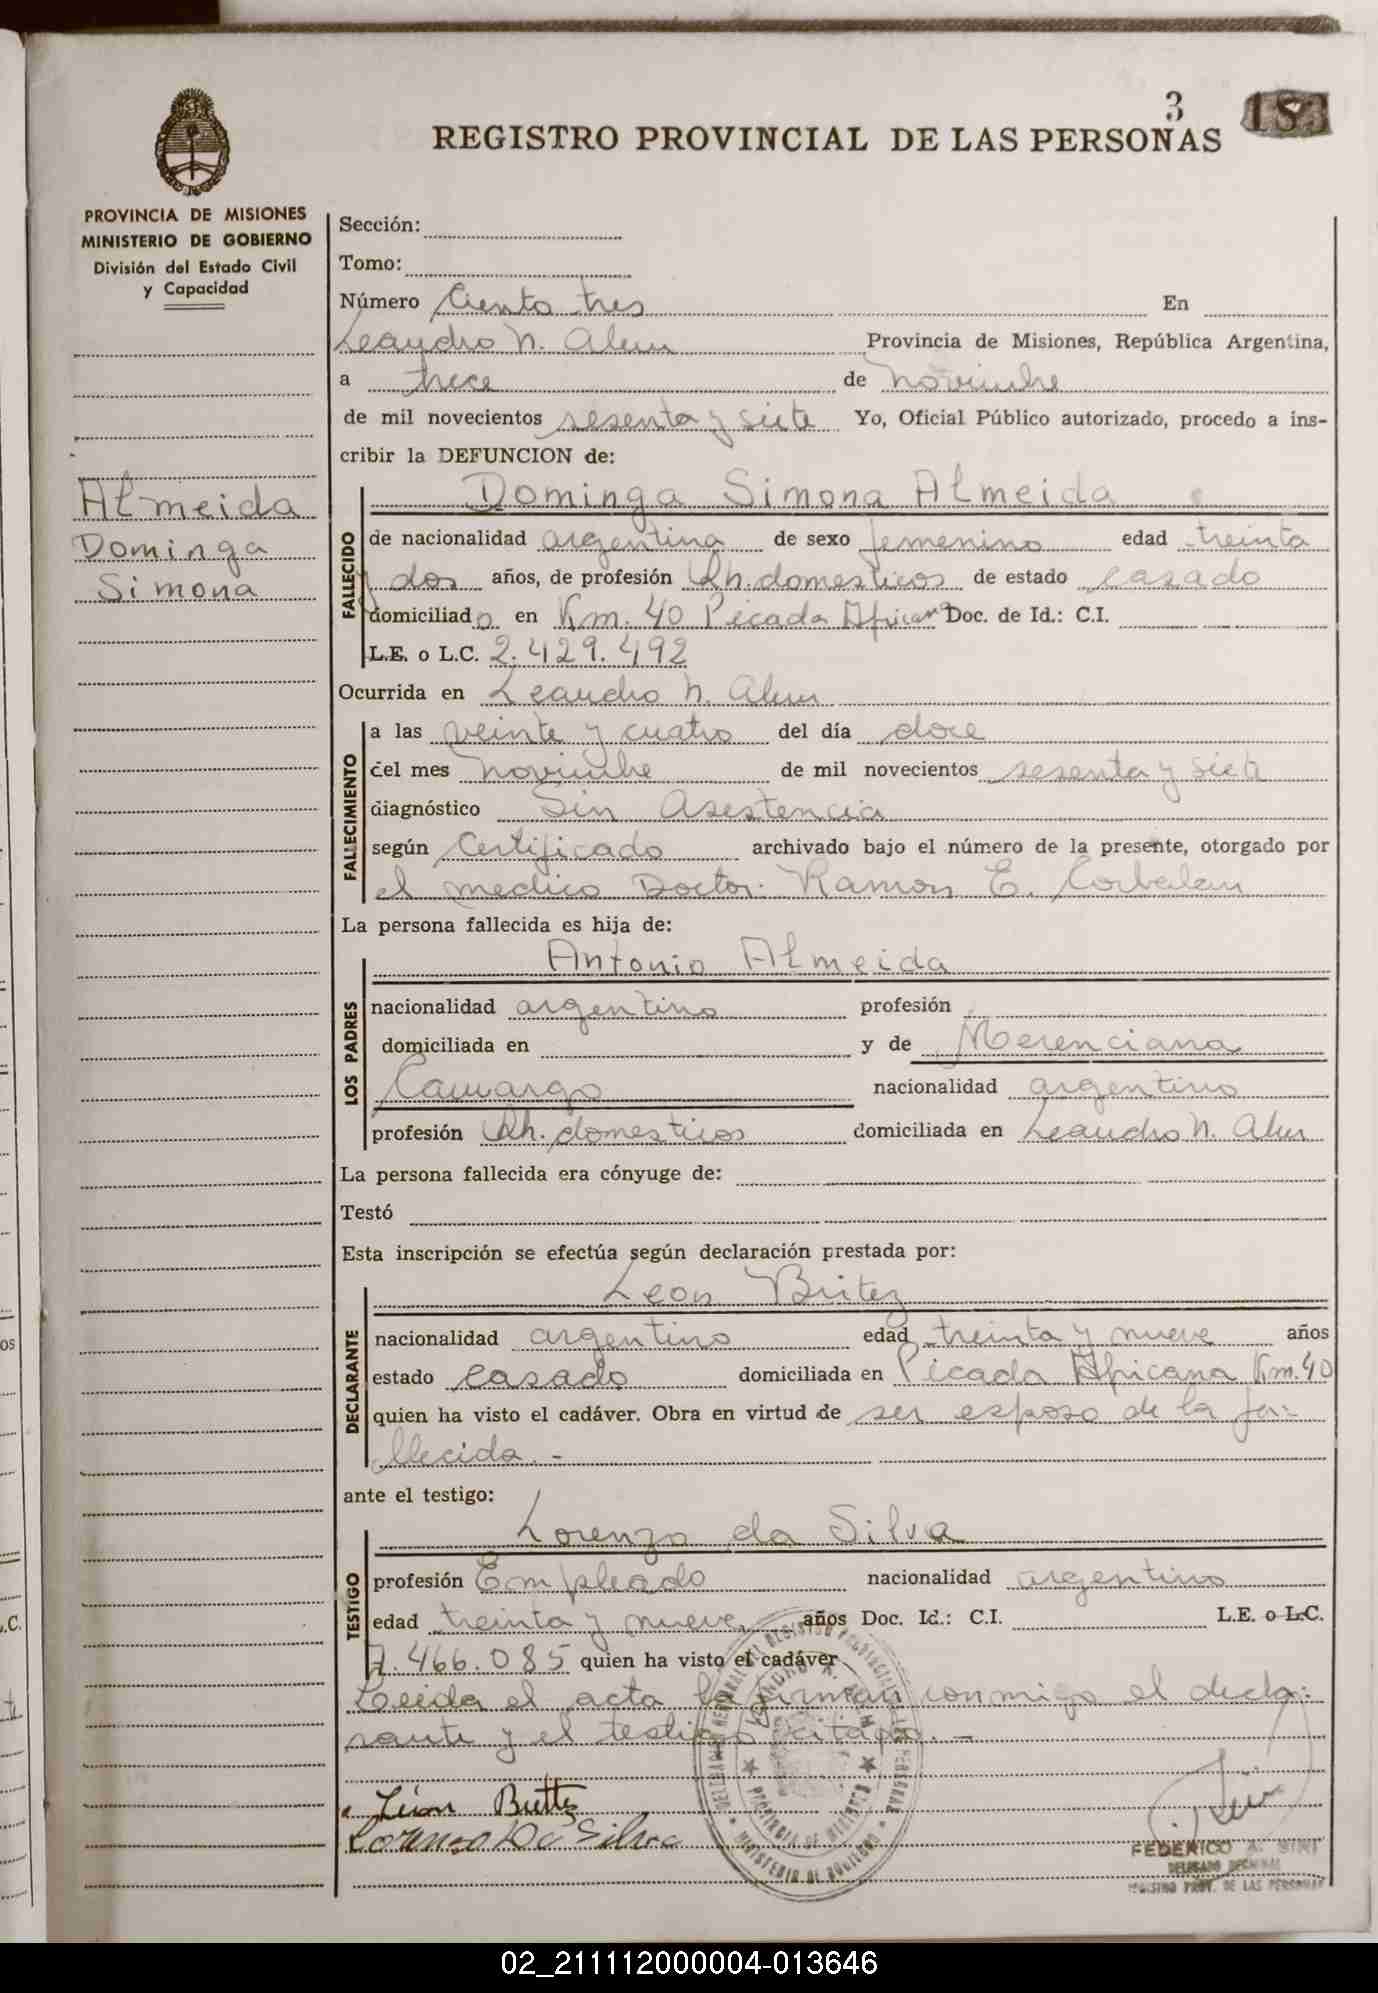 3 183
REGISTRO PROVINCIAL DE LAS PERSONAS
PROVINCIA DE MISIONES
MINISTERIO DE GOBIERNO
División del Estado Civil
y Capacidad
Almeida
Dominga
Simona
Sección:
Tomo:
Número Ciento tres En
Leandro N. Alem Provincia de Misiones, República Argentina,
a trece de noviembre
de mil novecientos sesenta y siete Yo, Oficial Público autorizado, procedo a ins-
cribir la DEFUNCION de:
Dominga Simona Almeida
FALLECIDO
de nacionalidad argentina de sexo femenino edad treinta
y dos años, de profesión Qh. domesticos de estado casado
domiciliado en Km. 40 Picada Africana Doc. de Id.: C.I.
L.E. o L.C. 2.429.492
Ocurrida en Leandro N. Alem
FALLECIMIENTO
a las veinte y cuatro del día doce
del mes noviembre de mil novecientos sesenta y siete
diagnóstico Sin Asestencia
según Certificado archivado bajo el número de la presente, otorgado por
el medico Doctor: Ramon E. Corbalan
La persona fallecida es hija de:
Antonio Almeida
LOS PADRES
nacionalidad argentino profesión
domiciliada en y de Merenciana
Camargo nacionalidad argentino
profesión Qh. domesticos domiciliada en Leandro N. Alem
La persona fallecida era cónyuge de:
Testó
Esta inscripción se efectúa según declaración prestada por:
Leon Britez
DECLARANTE
nacionalidad argentino edad treinta y nueve años
estado casado domiciliada en Picada Africana Km. 40
quien ha visto el cadáver. Obra en virtud de ser esposo de la fa-
llecida. -
ante el testigo:
Lorenzo da Silva
TESTIGO
profesión Empleado nacionalidad argentino
edad treinta y nueve años Doc. Id.: C.I. L.E. o L.C.
7.466.085 quien ha visto el cadáver
Leida el acta la firman conmigo el decla-
rante y el testigo citado. -
León Brittez
Lorenzo Da Silva
PROVINCIA DE MISIONES
MINISTERIO DE GOBIERNO
FEDERICO A.
REGISTRO PROV. DE LAS PERSONAS
02_211112000004-013646